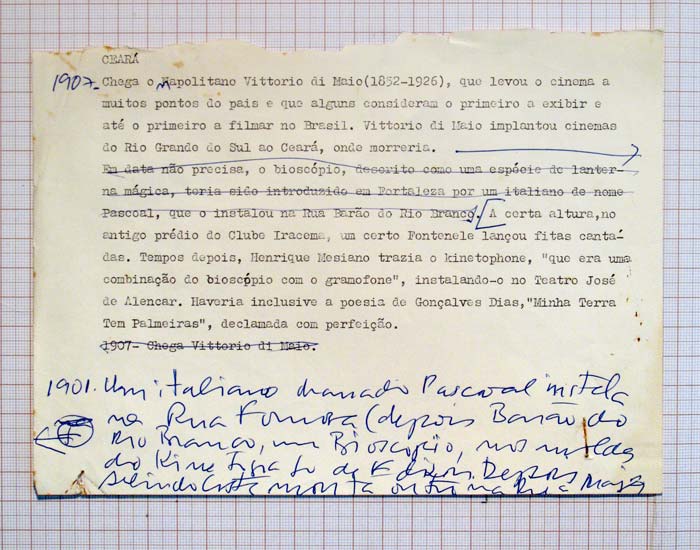 CEARÁ
1907- Chega o napolitano Vittorio di Maio(1852-1926), que levou o cinema a
muitos pontos do pais e que alguns consideram o primeiro a exibir e
até o primeiro a filmar no Brasil. Vittorio di Maio implantou cinemas
do Rio Grande do Sul ao Ceará, onde morreria.
Em data não precisa, o bioscópio, descrito como uma espécie de lanter-
na mágica, teria sido introduzido em Fortaleza por um italiano de nome
Pascoal, que o instalou na Rua Barão do Rio Branco. A certa altura,no
antigo prédio do Clube Iracema, um certo Fontenele lançou fitas cantá-
das. Tempos depois, Henrique Mesiano trazia o kinetophone, "que era uma
combinação do bioscópio com o gramofone", instalando-o no Teatro José
de Alencar. Haveria inclusive a poesia de Gonçalves Dias,"Minha Terra
Tem Palmeiras", declamada com perfeição.
1907- Chega Vittorio di Maio.
1901. Um italiano chamado Pascoal instala
na Rua Formosa (depois Barão do
Rio Branco, um Bioscopio, nos moldes
do Kine de Edison. Depois
monta outro na Rua Major